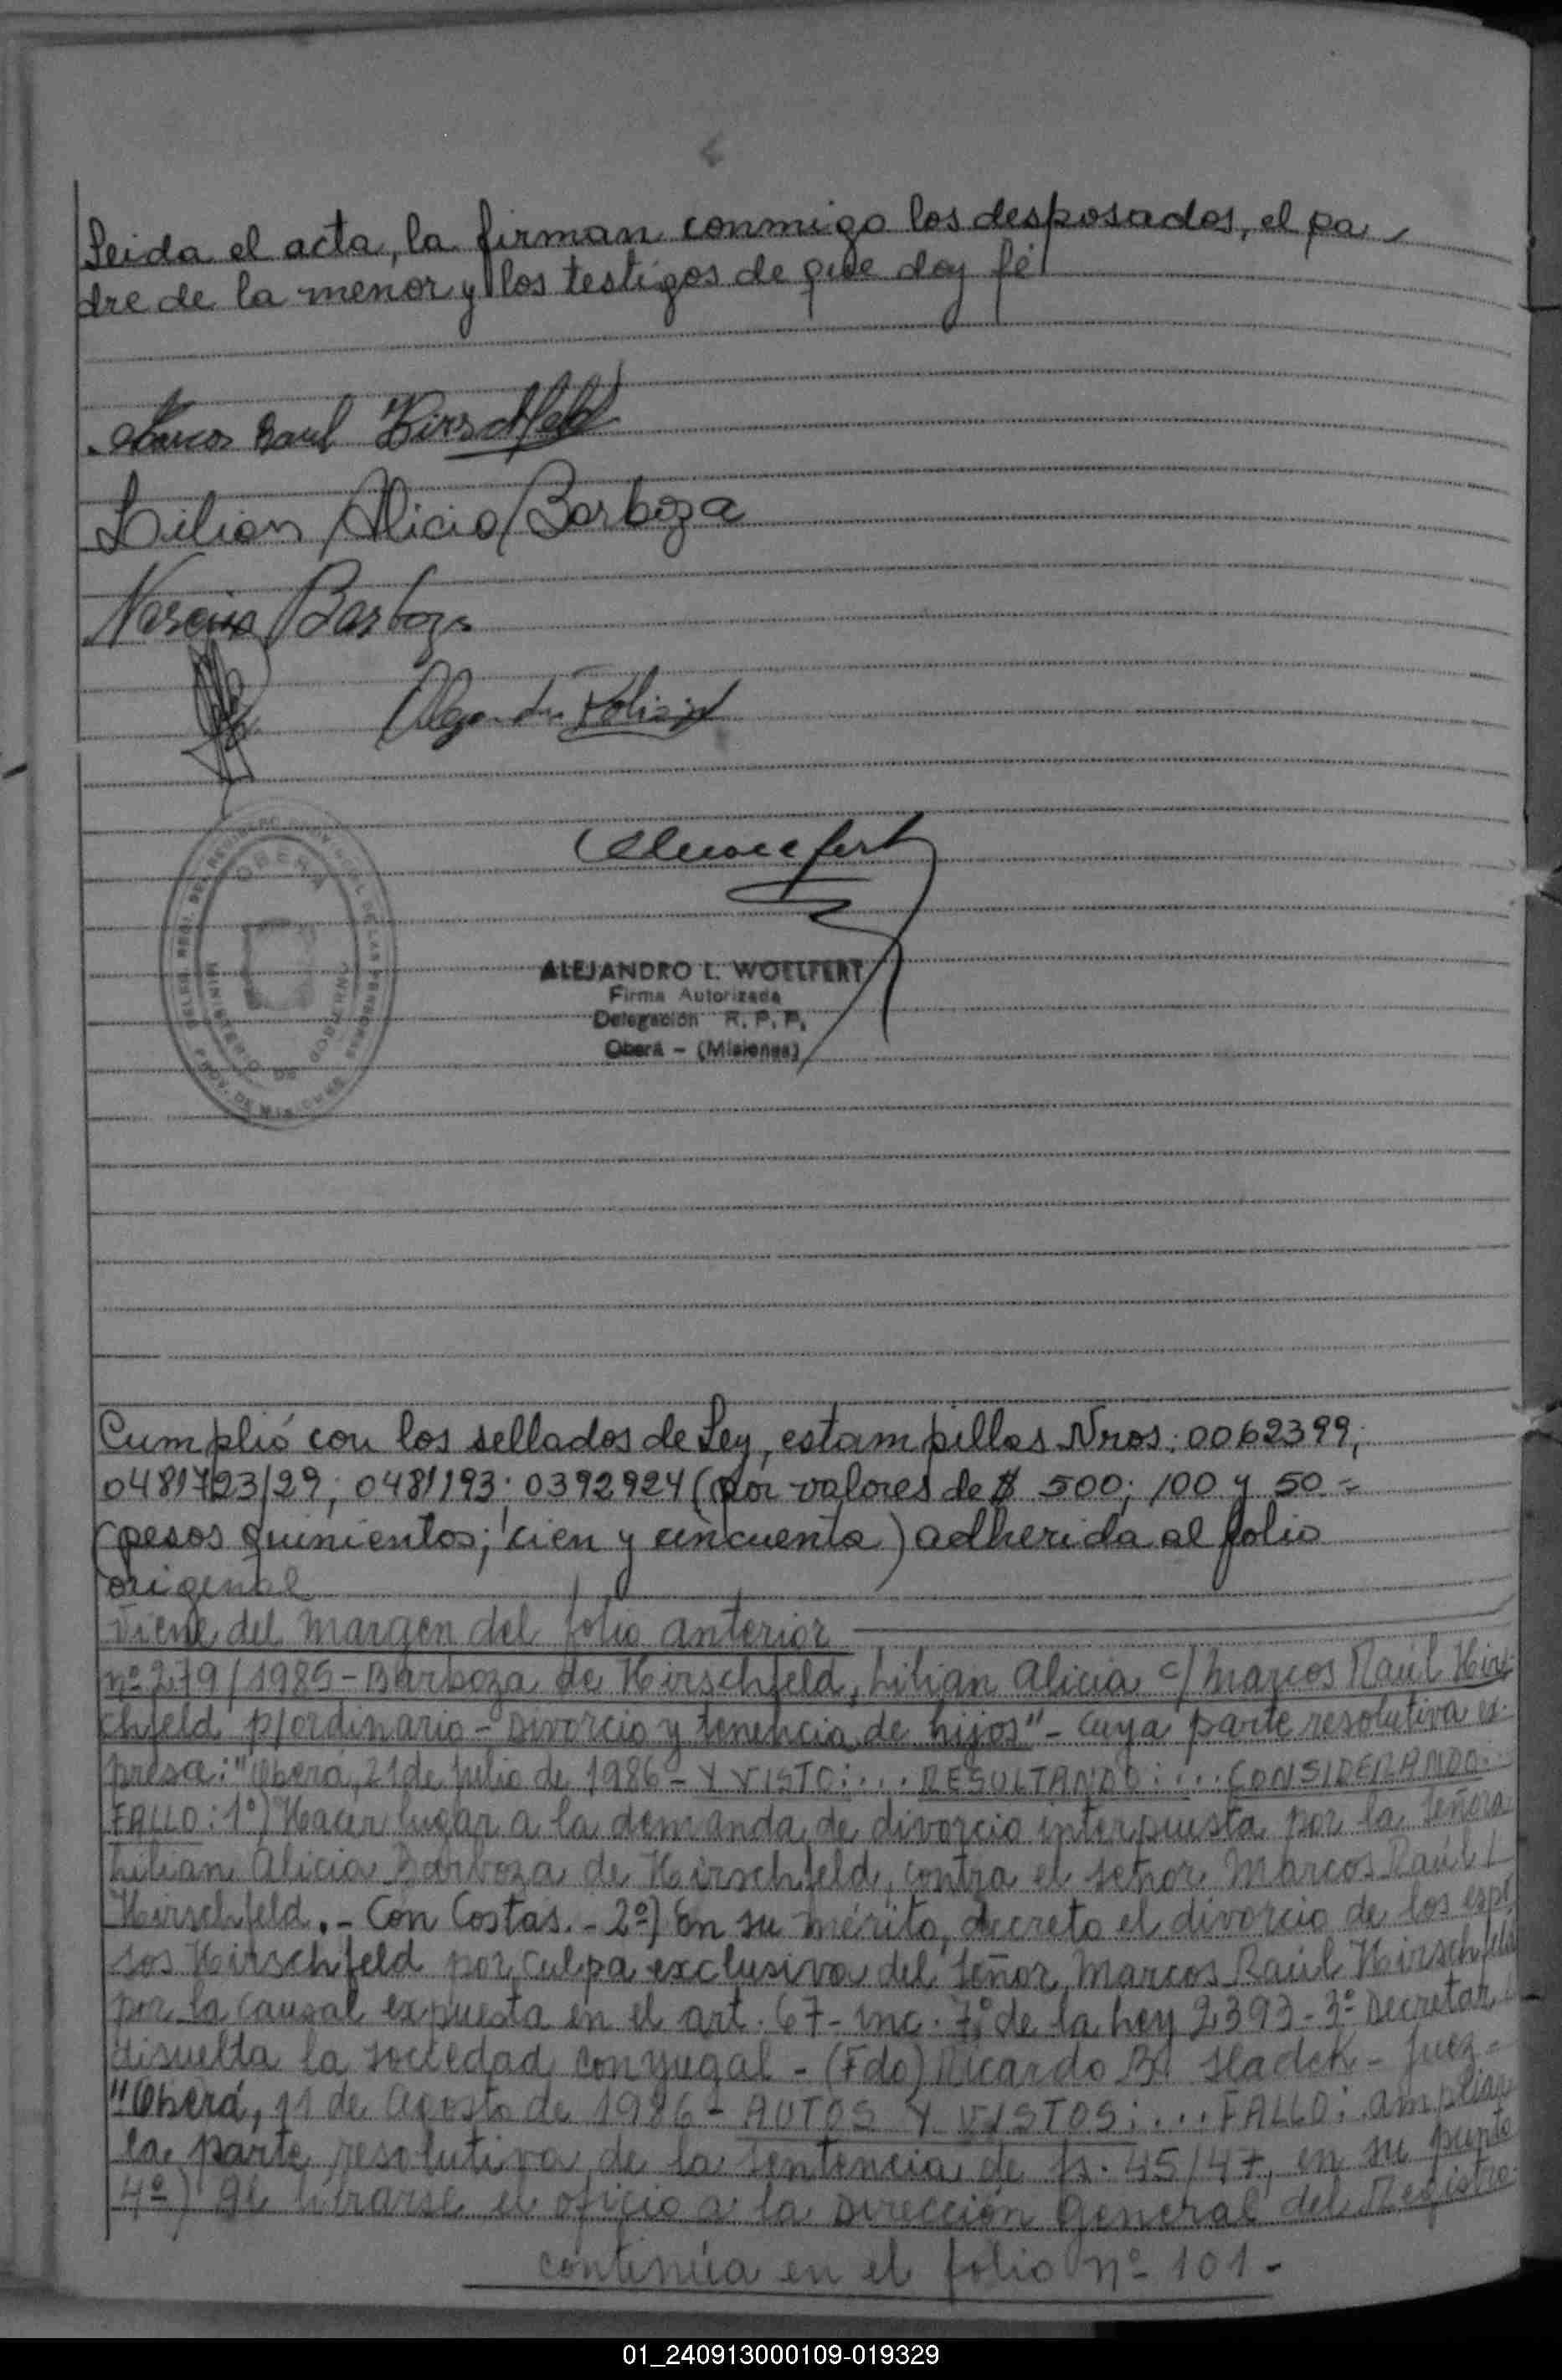 Leida el acta, la firman conmigo los desposados, el pa-
dre de la menor y los testigos de que doy fé
Marcos Raul Hirschfeld
Lilian Alicia Barboza
Narciso Barboza
OBERA
MINISTERIO DE GOBIERNO
PROV. DE MISIONES
ALEJANDRO L. WOELFERT
Firma Autorizada
Delegación R. P. P.
Oberá - (Misiones)
Cumplió con los sellados de Ley, estampillas Nros: 0062399;
0481723/29; 0481193; 0392924 (por valores de $ 500; 100 y 50 =
(pesos quinientos; cien y cincuenta) adherida al folio
original
viene del margen del folio anterior
nº 279/1985 - Barboza de Hirschfeld, Lilian Alicia c/ Marcos Raúl Hirs-
chfeld p/ordinario - Divorcio y tenencia de hijos" - Cuya parte resolutiva ex-
presa: "Oberá, 21 de julio de 1986 - Y VISTO: ... RESULTANDO: ... CONSIDERANDO:
FALLO: 1º) Hacer lugar a la demanda de divorcio interpuesta por la señora
Lilian Alicia Barboza de Hirschfeld, contra el señor Marcos Raúl
Hirschfeld. - Con Costas. - 2º) En su mérito, decreto el divorcio de los espo
sos Hirschfeld por culpa exclusiva del señor Marcos Raúl Hirschfeld
por la causal expuesta en el art. 67 - inc. 7º de la Ley 2393 - 3º Decretar
disuelta la sociedad conyugal - (Fdo) Ricardo Sladek - Juez -
"Oberá, 11 de Agosto de 1986 - AUTOS Y VISTOS: ... FALLO: ampliar
la parte resolutiva de la sentencia de fs. 45/47, en su punto
4º) librarse el oficio a la Dirección General del Registro
continúa en el folio nº 101 -
01_240913000109-019329